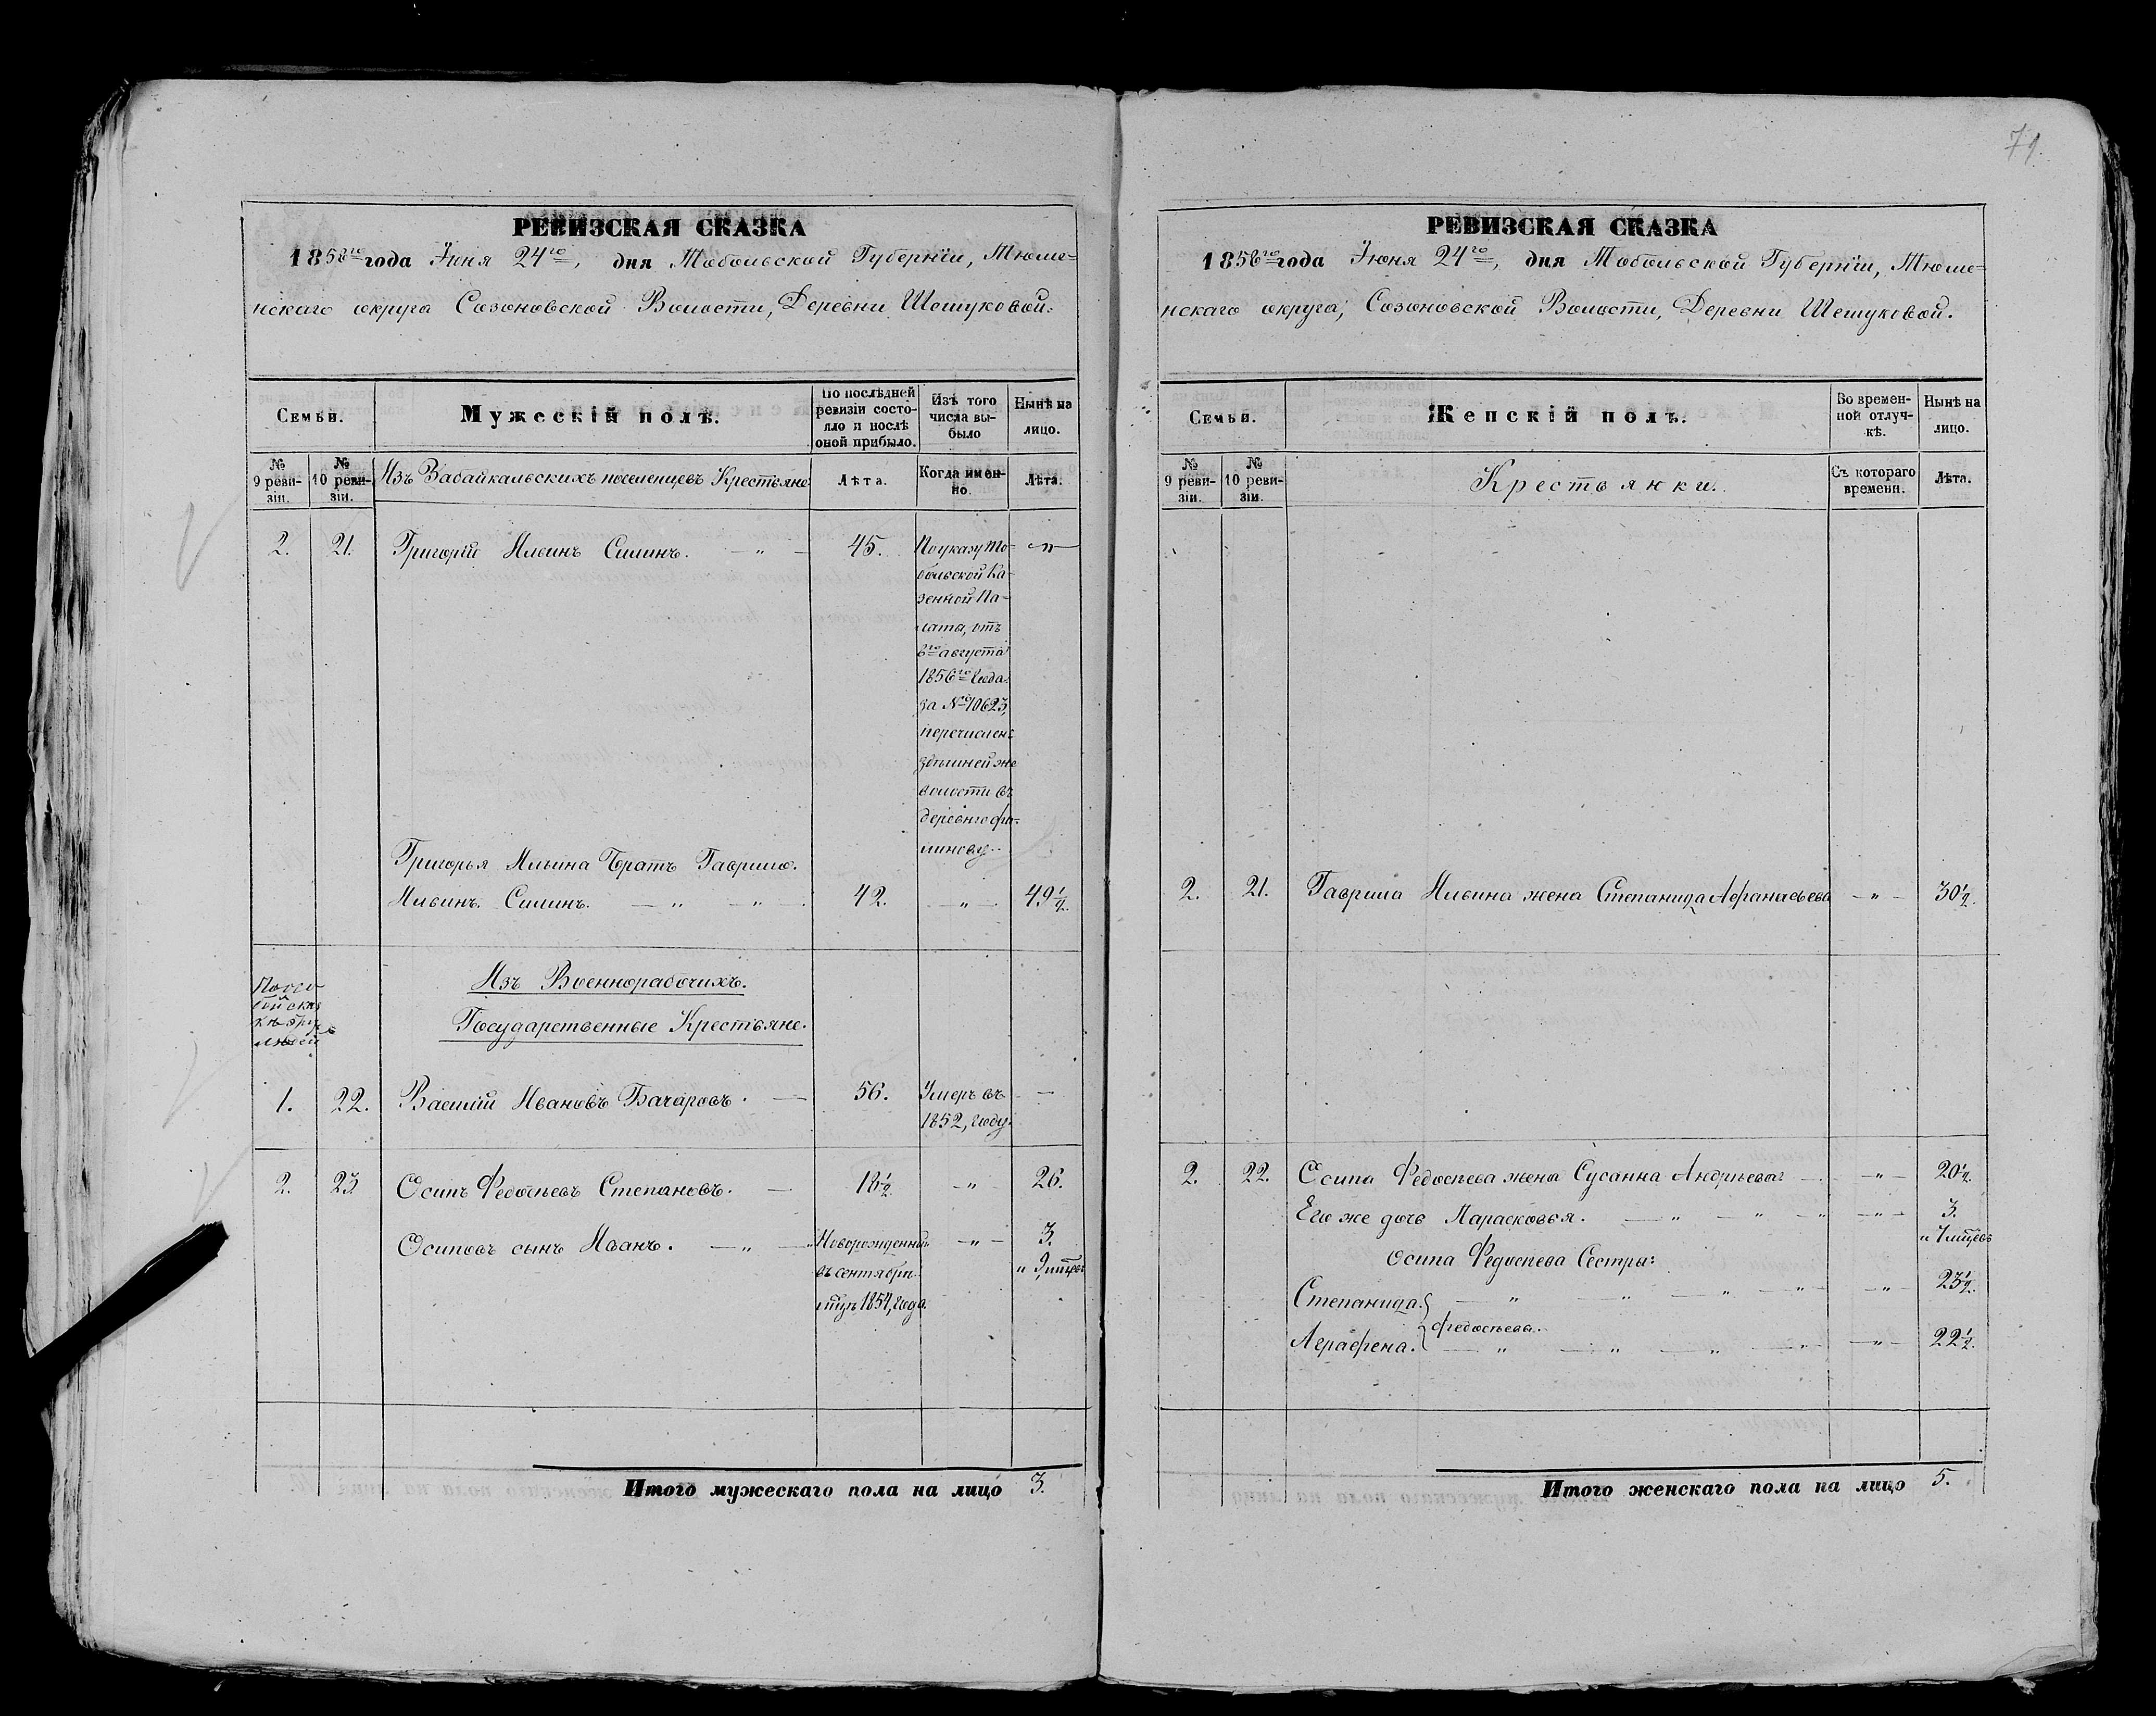 71.
РЕВИЗСКАЯ СКАЗКА
1858го года Іюня 24го, дня Тобольской Губерніи, Тюме-
нскаго округа Созоновской Волости, Деревни Шешуковой.
Семьи.
Мужескій полъ.
По послѣдней ревизіи состо-
яло и послѣ оной прибыло.
Изъ того числа вы-
было
Нынѣ на лицо.
№ 9 реви-
зіи.
№ 10 реви-
зіи.
Изъ Забайкальскихъ поселенцевъ Крестьяне
Лѣта.
Когда имен-
но.
Лѣта.
2. 21. Григорій Ильинъ Силинъ. — „ — 45. — „ —
По указу То-
больской Ка-
зенной Па-
лата, отъ
6го августа
1856го года
за № 10623,
перечисленъ
здѣшней же
волости въ
деревню Фи-
линову.
Григорья Ильина Братъ Гаврило.
Ильинъ Силинъ. — „ — „ — 42. — „ — 49½.
Изъ Военнорабочихъ.
Государственные Крестьяне.
1. 22. Василій Ивановъ Бачаровъ. — 56. Умеръ въ —
1852, году.
2. 23. Осипъ Федосѣевъ Степановъ. — 18½. — „ — 26.
Осиповъ сынъ Иванъ. — „ — Новорожденный — „ — 3.
въ сентябрѣ „ 9 мѣцевъ
мѣцѣ 1854, года
Итого мужескаго пола на лицо 3.
РЕВИЗСКАЯ СКАЗКА
1858го года Іюня 24го, дня Тобольской Губерніи, Тюме-
нскаго округа, Созоновской Волости, Деревни Шешуковой.
Семьи.
Женскій полъ.
Во времен-
ной отлуч-
кѣ.
Нынѣ на лицо.
№ 9 реви-
зіи.
№ 10 реви-
зіи.
Крестьянки.
Съ котораго времени.
Лѣта.
2. 21. Гаврила Ильина жена Степанида Афанасьева — „ — 30½.
2. 22. Осипа Федосѣева жена Сусанна Андрѣева — — „ — 20½.
Его же дочь Парасковья. — „ — „ — „ — „ — 3.
„ 1 мѣцевъ
Осипа Федосѣева Сестры:
Степанида. — „ — „ — „ — „ — „ — 23½.
Федосѣевы.
Аграфена. — „ — „ — „ — „ — „ — 22½.
Итого женскаго пола на лицо 5.